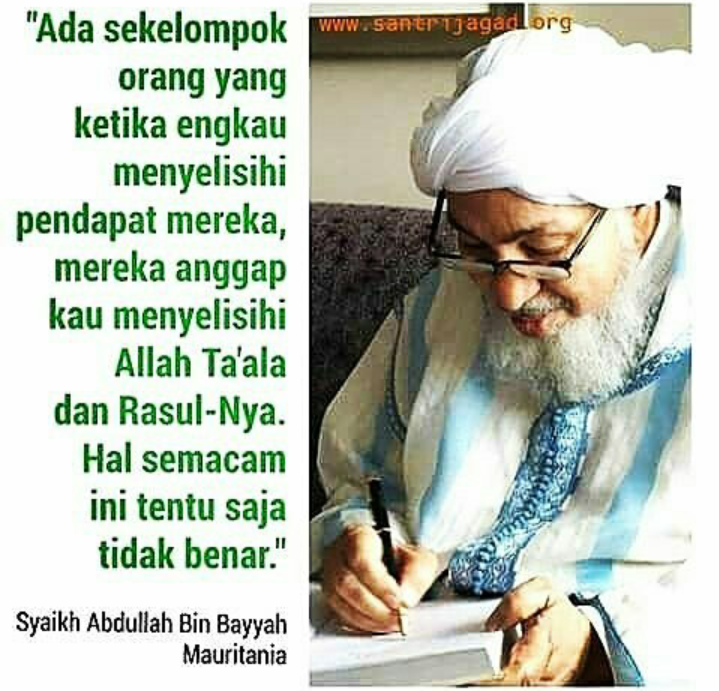 "Ada sekelompok
orang yang
ketika engkau
menyelisihi
pendapat mereka,
mereka anggap
kau menyelisihi
Allah Ta'ala
dan Rasul-Nya.
Hal semacam
ini tentu saja
tidak benar."
Syaikh Abdullah Bin Bayyah
Mauritania
www.santrijagad.org